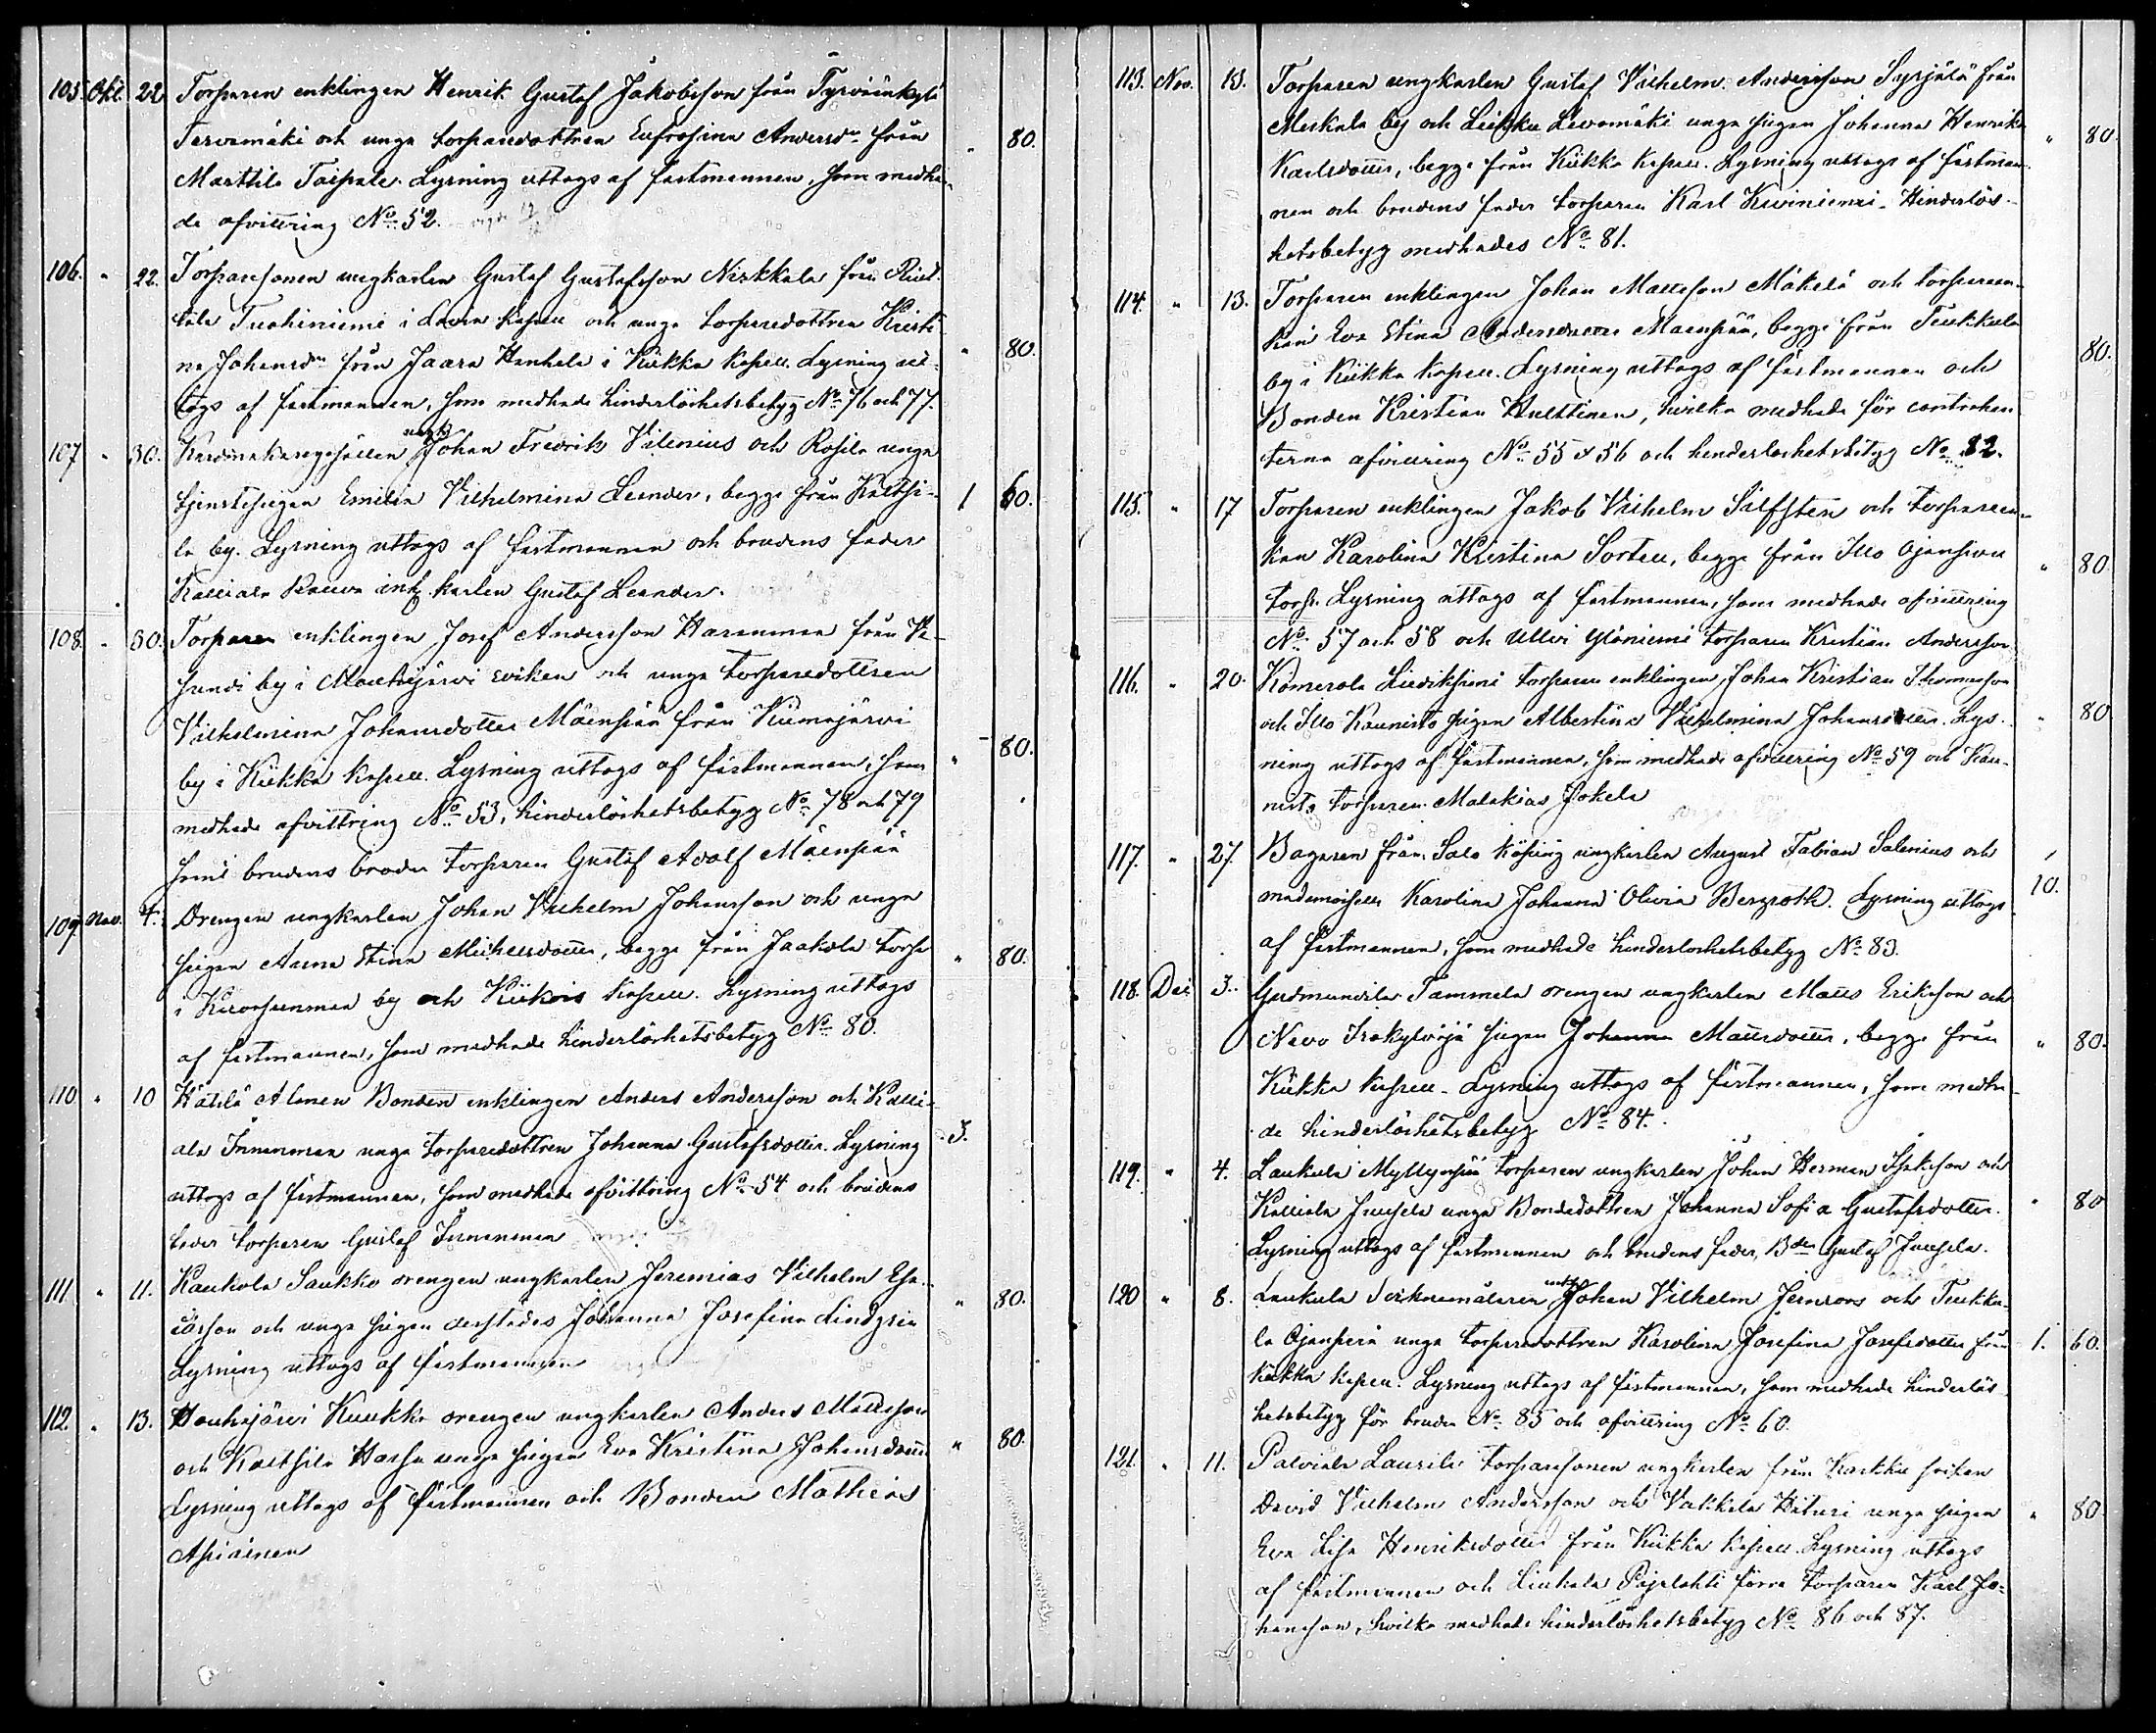 105. Okt. 22 Torparen enklingen Henrik Gustaf Jakobsson från Tyrväänkylä
Tervamäki och unga torparedottren Eufrosina Andersdr från
Marttila Taipale. Lysning uttogs af fästmannen, som medha- " 80.
de afvittring No 52.
106. " 22. Torparesonen ungkarlen Gustaf Gustafsson Niskkala från
Tuohiniemi i kapell och unga torparedottren Kristi-
na Johansdr från Jaara Hankala i Kiikka kapell. Lysning ut- " 80.
togs af fästmannen, som medhade hinderlöshetsbetyg No 76 och 77.
107 " 30. Kardmakaregesällen ungk. Johan Fredrik Vilenius och Rosila unga
tjenstepigan Emilia Vilhelmina Leander, begge från Kaltsi- 1 60.
la by. Lysning uttogs af fästmannen och brudens fader
Kallials karlen Gustaf Leander.
108. " 30. Torparen enklingen Josef Andersson Haranmaa från
by i Mouhijärvi socken och unga torparedottren
Vilhelmina Johansdotter Mäenpää från Kiimajärvi
by i Kiikka kapell. Lysning uttogs af fästmannen, som " 80.
medhade afvittring No 53, hinderlöshetsbetyg No 78 och 79
samt brudens broder torparen Gustaf Adolf Mäenpää
109. Nov. 4. Drengen ungkarlen Johan Vilhelm Johansson och unga
pigan Anna Stina Michelsdotter, begge från Jaakola torp " 80.
i Kuorsunmaa by och Kiikois kapell. Lysning uttogs
af fästmannen, som medhade hinderlöshetsbetyg No 80.
110 " 10 Hätilä Alanen Bonden enklingen Anders Andersson och Kalli-
ala Innanmaa unga torparedottren Johanna Gustafsdotter. Lysning 3.
uttogs af fästmannen, som medhade afvittring No 54 och brudens
fader torparen Gustaf Innanmaa
111 " 11. Kaukola Saukko drengen ungkarlen Jeremias Vilhelm Esa-
iasson och unga pigan derstädes Johanna Josefina Lindgren " 80.
Lysning uttogs af fästmannen
112. " 13. Houhajärvi Kuukka drengen ungkarlen Anders Mattsson
och Kaltsila Harju unga pigan Eva Kristina Johansdotter " 80.
Lysning uttogs af fästmannen och Bonden Mathias
Apiainen
113. Nov. 13. Torparen ungkarlen Gustaf Vilhelm Andersson Syrjälä från
Meskala by och Leikku Levomäki unga pigan Johanna Henrika " 80.
Karlsdotter, begge från Kiikka kapell. Lysning uttogs af fästman-
nen och brudens fader torparen Karl Kiviniemi. Hinderlös-
hetsbetyg medhades No 81.
114. " 13. Torparen enklingen Johan Mattsson Mäkelä och torpareen-
kan Eva Stina Andersdotter Mäenpää, begge från Tiukkula 80.
by i Kiikka kapell. Lysning uttogs af fästmannen och
Bonden Kristian Hulttinen, hvilka medhade för contrahen-
terna afvittring No 55 & 56 och hinderlöshetsbetyg No 82.
115. " 17 Torparen enklingen Jakob Vilhelm Silfsten och torpareen-
kan Karolina Kristina Sorten, begge från Illo Ojansivu " 80
torp. Lysning uttogs af fästmannen, som medhade afvittring
No 57 och 58 och Ullvi Yliniemi torparen Kristian Andersson
116. " 20. Komerola Liedikspeni torparen enklingen Johan Kristian Thomasson
och Illo Kaunisto pigan Albertina Vilhelmina Johansdotter. Lys- " 80
ning uttogs af fästmannen, som medhade afvittring No 59 och Kau-
nisto torparen Malakias Jokela
117. " 27 Bagaren från Salo köping ungkarlen August Fabian Salenius och
mademoiselle Karolina Johanna Olivia Bergroth. Lysning uttogs 10.
af fästmannen, som medhade hinderloshetsbetyg No 83.
118. Dec 3. Gudmundila Tammela drengen ungkarlen Matts Eriksson och
Nevo Isokylvöjä pigan Johanna Mattsdotter, begge från " 80.
Kiikka kapell. Lysning uttogs af fästmannen, som medha-
de hinderlöshetsbetyg No 84.
119. " 4. Laukula Myllynpää torparen ungkarlen Johan Herman Isaksson och
Kalliala Juusela unga Bondedottren Johanna Sofia Gustafsdotter. " 80
Lysning uttogs af fästmannen och brudens fader, Bden Gustaf Juusela.
120 " 8. Laukula Sockenmålaren ungk. Johan Vilhelm Jernroos och Tiukku-
la Ojanperä unga torparedottren Karolina Josefina Josefsdotter från 1. 60.
Kiikka kapell. Lysning uttogs af fästmannen, som medhade hinderlös-
hetsbetyg för bruden No 85 och afvittring No 60.
121. " 11. Palviala Laurila torparesonen ungkarlen från Karkku socken
David Vilhelm Andersson och Valikala Hituri unga pigan " 80.
Eva Lisa Henriksdotter från Kiikka kapell. Lysning uttogs
af fästmannen och Liukala Pajulahti förra torparen Karl Jo-
hansson, hvilka medhade hinderlöshetsbetyg No 86 och 87.